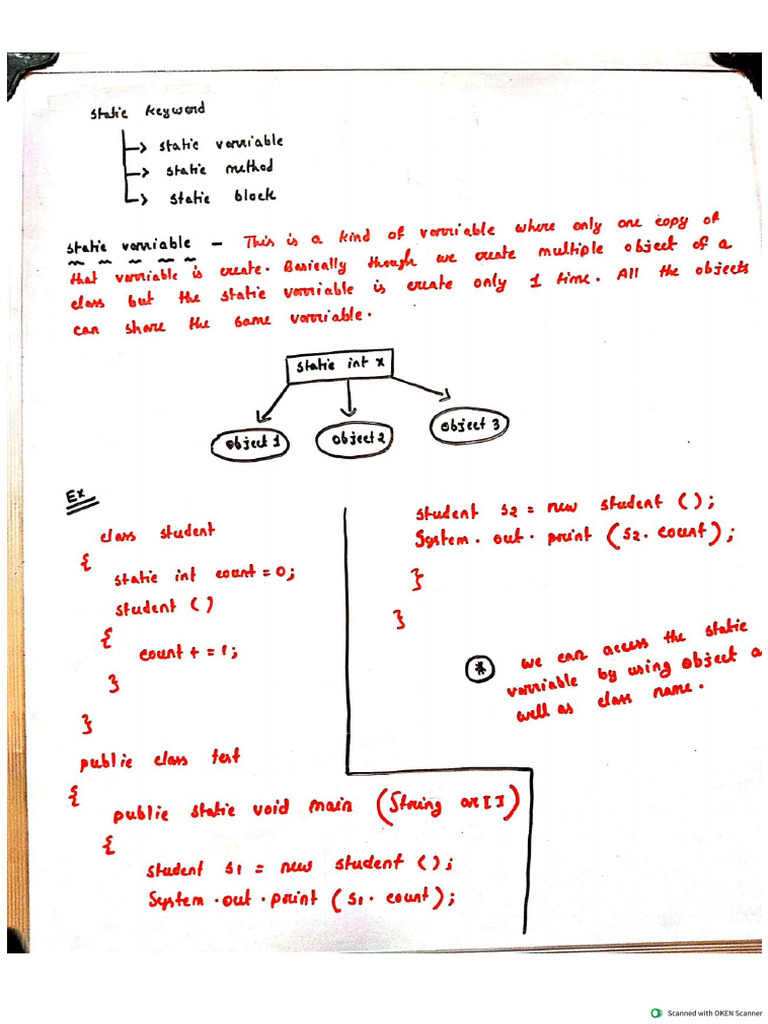 static keyword
static variable
static method
static block
static variable - This is a kind of variable where only one copy of
that variable is create. Basically though we create multiple object of a
class but the static variable is create only 1 time. All the objects
can share the same variable.
static int x
object 1
object 2
object 3
Ex
class student
{
static int count = 0;
student ()
{
count + = 1;
}
}
public class test
{
public static void main (String ar[])
{
student s1 = new student ();
System.out.print (s1.count);
student s2 = new student ();
System.out.print (s2.count);
}
}
* we can access the static
variable by using object as
well as class name.
Scanned with OKEN Scanner